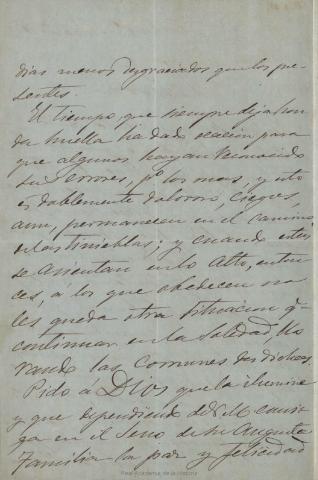 dias menos desgraciados que los pre-
sentes.
El tiempo, que siempre deja hon-
da huella ha dado ocasion para
que algunos hayan reconocido
sus errores, p.º los mas, y esto
es doblemente doloroso, ciegos,
aun, permanecen en el camino
de las tinieblas; y cuando estas
se asientan en lo Alto, enton-
ces, á los que obedecen no
les queda otra situacion q.e
continuar en la Soledad, llo-
rando las comunes desdichas.
Pido á DIos que la ilumine
y que dependiendo de V.M. consi-
ga en el Seno de su Augusta
Familia la paz y felicidad
Real Academia de la Historia